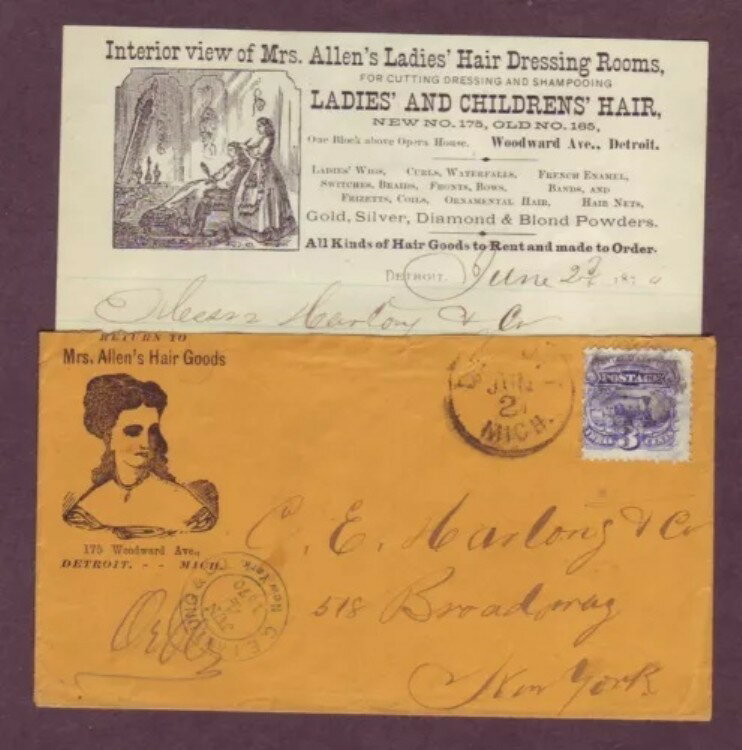 Interior view of Mrs. Allen's Ladies' Hair Dressing Rooms,
FOR CUTTING DRESSING AND SHAMPOOING
LADIES' AND CHILDRENS' HAIR,
NEW NO. 175, OLD NO. 165,
One Block above Opera House. Woodward Ave., Detroit.
LADIES' WIGS, CURLS, WATERFALLS, FRENCH ENAMEL,
SWITCHES, BRAIDS, FRONTS, BOWS, BANDS, AND
FRIZETTS, COILS, ORNAMENTAL HAIR, HAIR NETS,
Gold, Silver, Diamond & Blond Powders.
All Kinds of Hair Goods to Rent and made to Order.
DETROIT, June 2 187
Messrs Harlong & Co
RETURN TO
Mrs. Allen's Hair Goods
175 Woodward Ave.,
DETROIT, - - MICH.
2
MICH.
POSTAGE
3
C. E. Harlong & Co
518 Broadway
New York
New York
1870